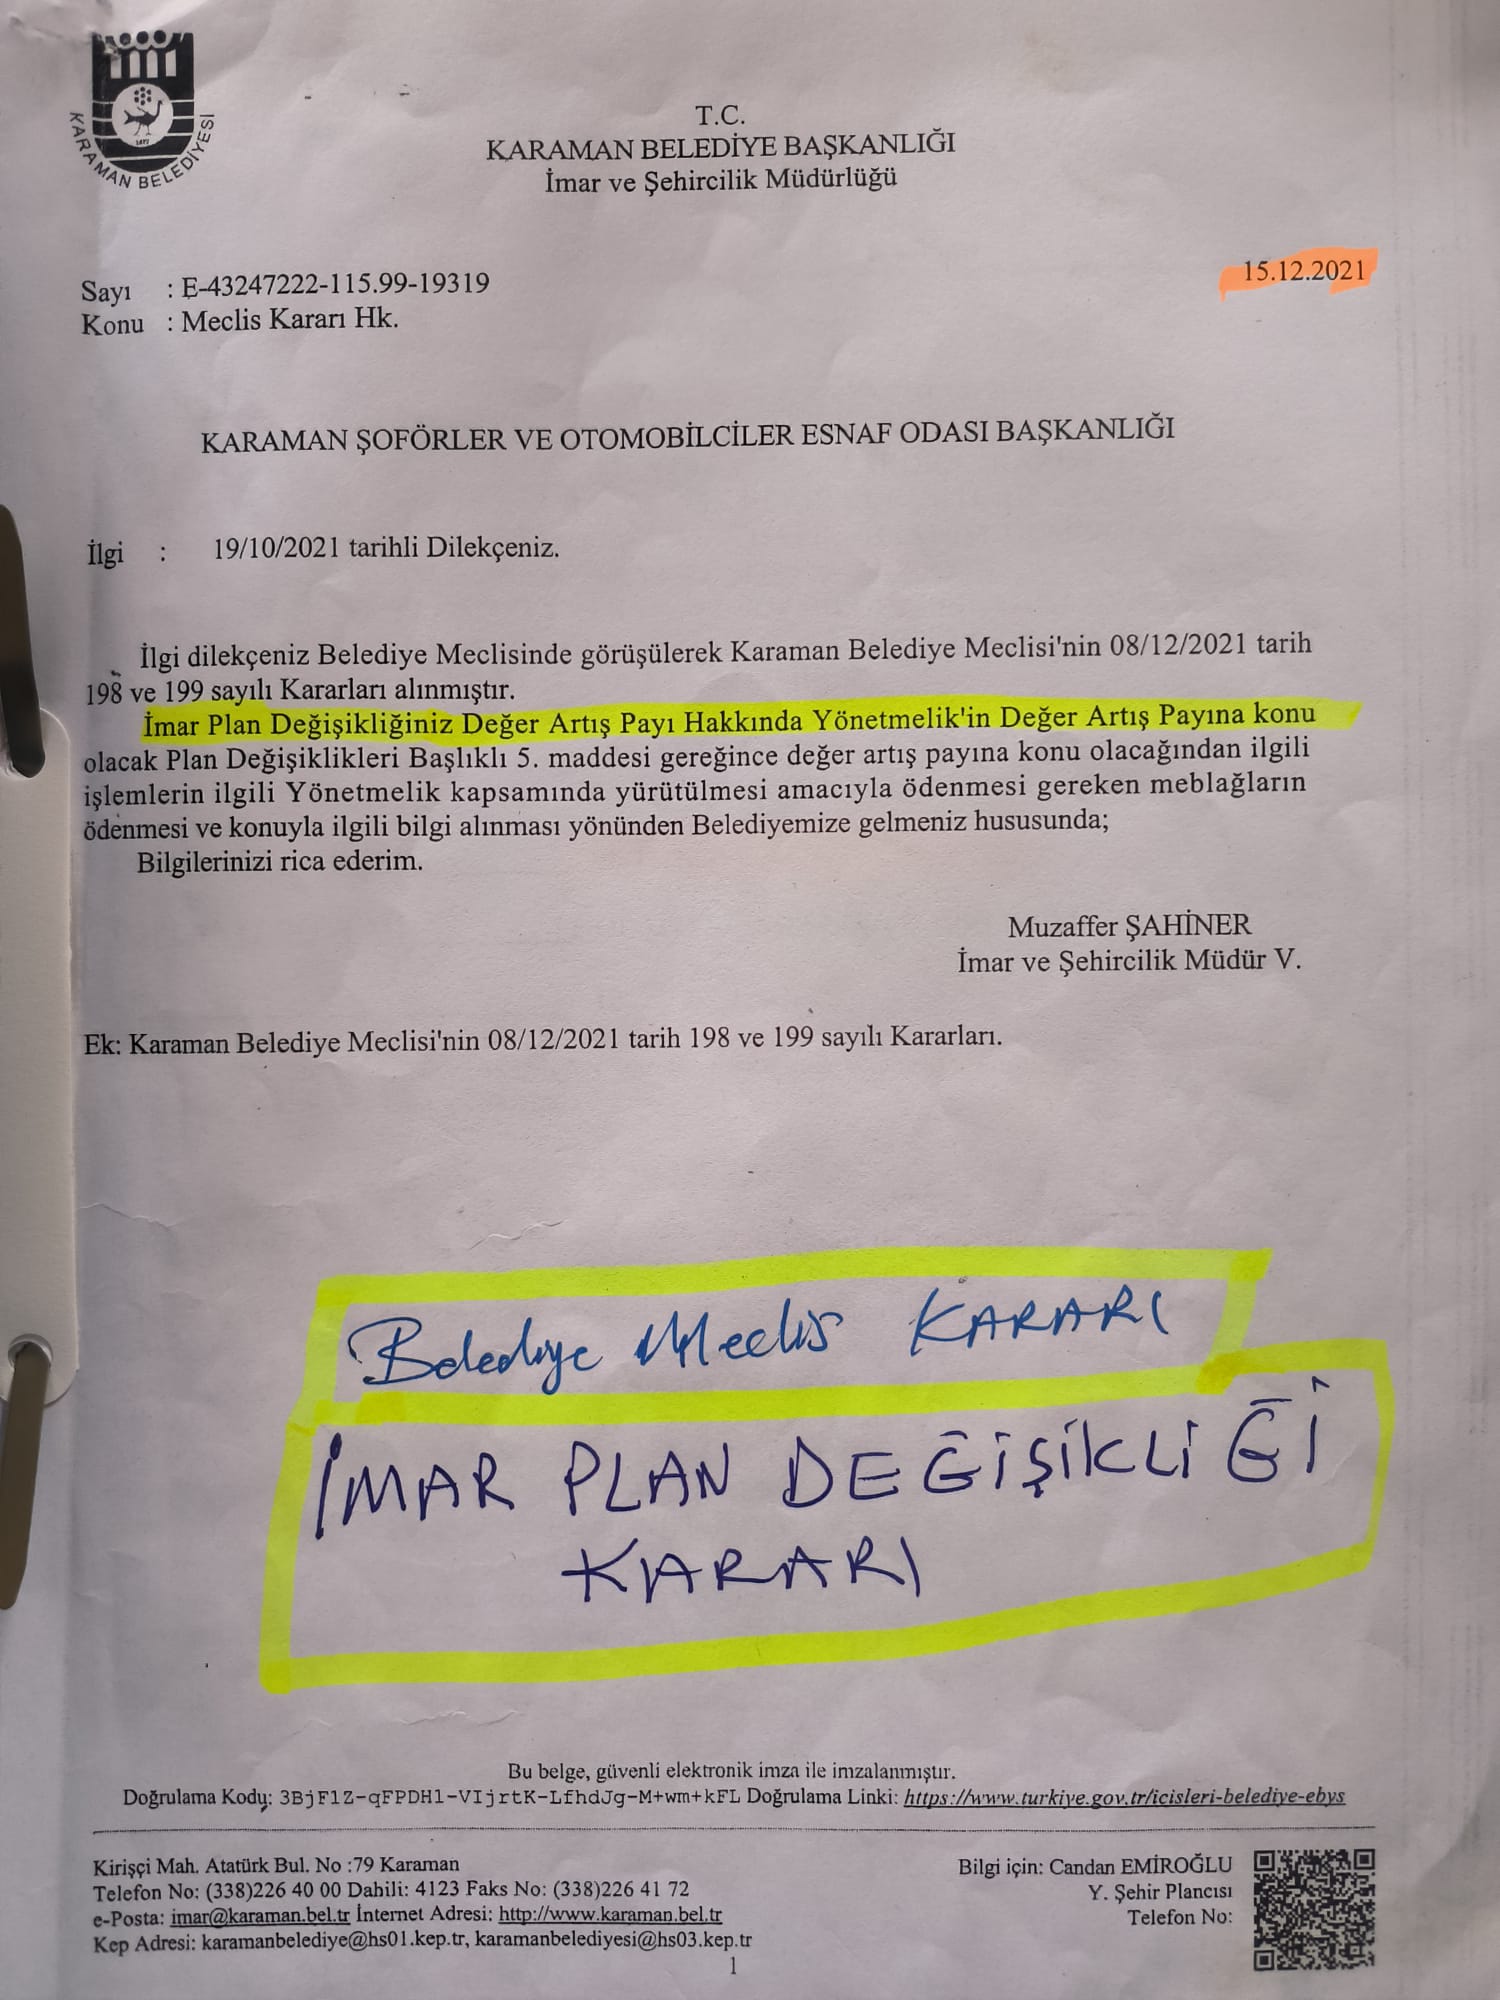 KARAMAN BELEDİYESİ
1477
T.C.
KARAMAN BELEDİYE BAŞKANLIĞI
İmar ve Şehircilik Müdürlüğü
15.12.2021
Sayı : E-43247222-115.99-19319
Konu : Meclis Kararı Hk.
KARAMAN ŞOFÖRLER VE OTOMOBİLCİLER ESNAF ODASI BAŞKANLIĞI
İlgi : 19/10/2021 tarihli Dilekçeniz.
İlgi dilekçeniz Belediye Meclisinde görüşülerek Karaman Belediye Meclisi'nin 08/12/2021 tarih
198 ve 199 sayılı Kararları alınmıştır.
İmar Plan Değişikliğiniz Değer Artış Payı Hakkında Yönetmelik'in Değer Artış Payına konu
olacak Plan Değişiklikleri Başlıklı 5. maddesi gereğince değer artış payına konu olacağından ilgili
işlemlerin ilgili Yönetmelik kapsamında yürütülmesi amacıyla ödenmesi gereken meblağların
ödenmesi ve konuyla ilgili bilgi alınması yönünden Belediyemize gelmeniz hususunda;
Bilgilerinizi rica ederim.
Muzaffer ŞAHİNER
İmar ve Şehircilik Müdür V.
Ek: Karaman Belediye Meclisi'nin 08/12/2021 tarih 198 ve 199 sayılı Kararları.
Belediye Meclis KARARI
İMAR PLAN DEĞİŞİKLİĞİ
KARARI
Bu belge, güvenli elektronik imza ile imzalanmıştır.
Doğrulama Kodu: 3BjF1Z-qFPDH1-VIjrtK-LfhdJg-M+wm+kFL Doğrulama Linki: https://www.turkiye.gov.tr/icisleri-belediye-ebys
Kirişçi Mah. Atatürk Bul. No :79 Karaman
Telefon No: (338)226 40 00 Dahili: 4123 Faks No: (338)226 41 72
e-Posta: imar@karaman.bel.tr İnternet Adresi: http://www.karaman.bel.tr
Kep Adresi: karamanbelediye@hs01.kep.tr, karamanbelediyesi@hs03.kep.tr
Bilgi için: Candan EMİROĞLU
Y. Şehir Plancısı
Telefon No:
1